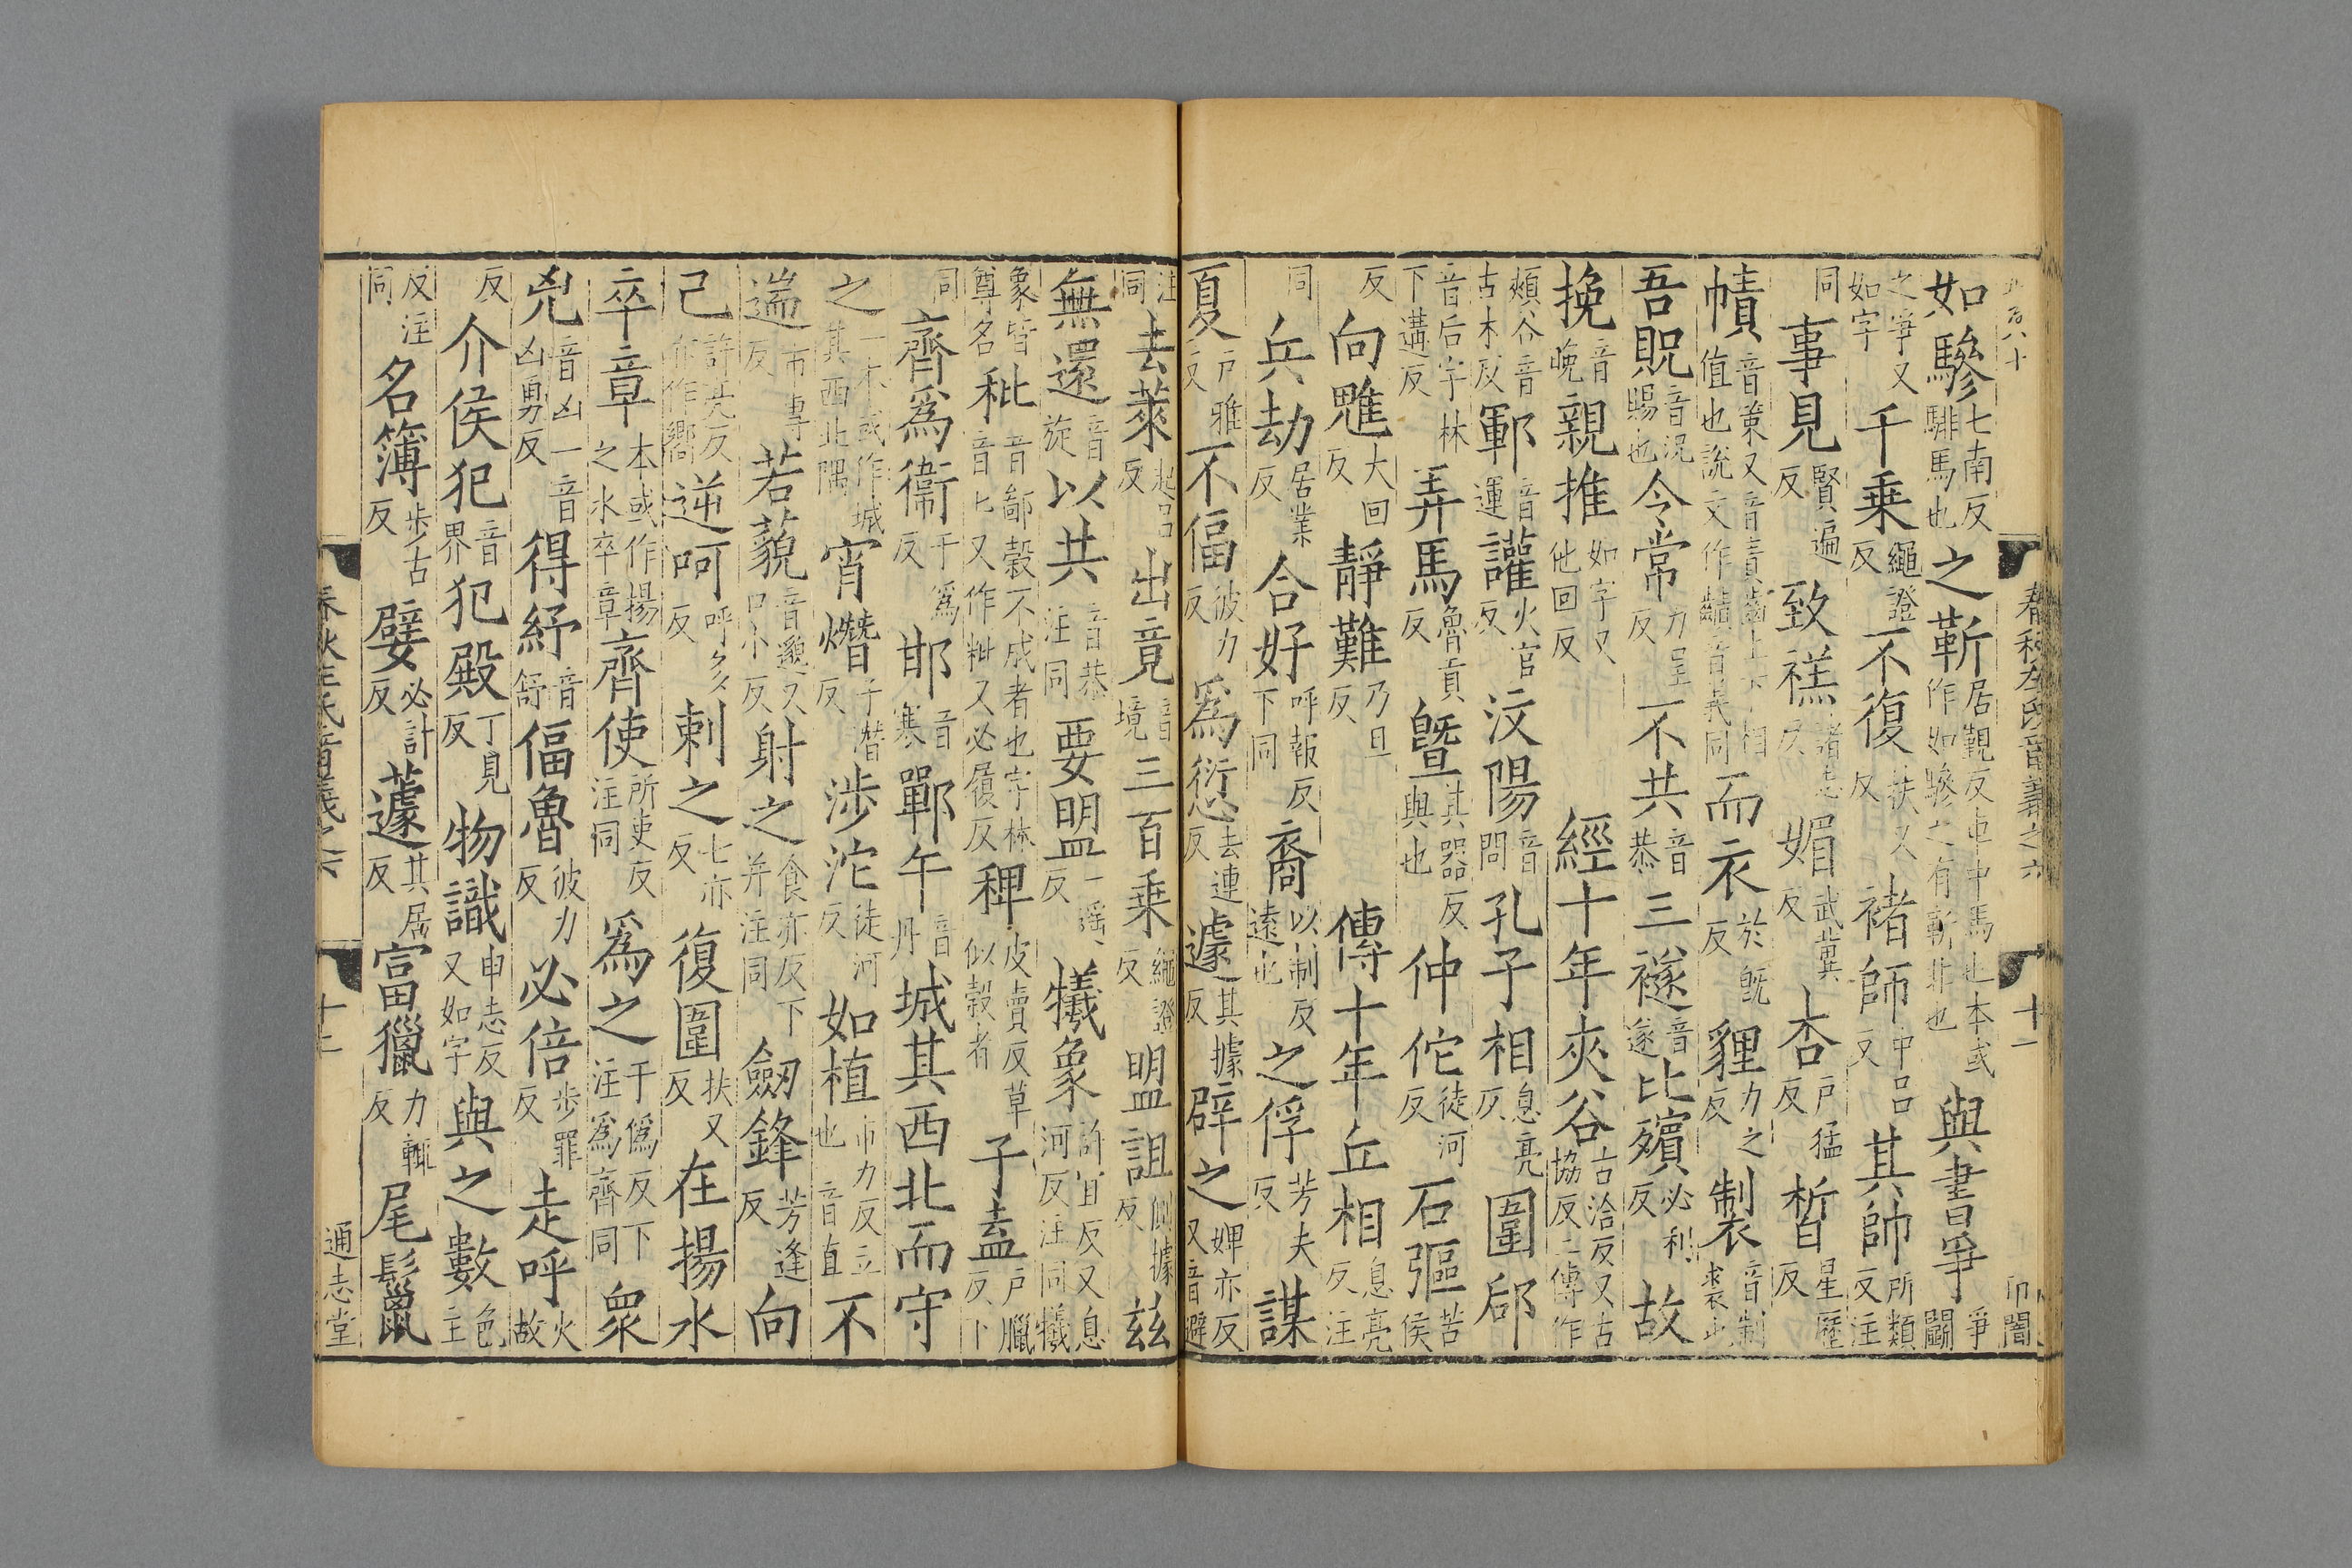 春秋左氏音義之六 十一
如驂七南反騑馬也之靳居覲反車中馬也本或作如驂之有靳非也與書爭爭鬭
之爭又如字千乘繩證反不復扶又反褚師中呂反其帥所類反注
同事見賢遍反致禚諸若反媚武冀反杏戶猛反晳星歷反
幘音策又音責齒上下相值也說文作䶦音義同而衣於旣反貍力之反製音制裘也
吾貺音況賜也令常力呈反不共音恭三襚音遂比殯必利反故
挽音晚親推如字又他回反 經十年夾谷古洽反又古協反二傳作
頰谷音古木反鄆音運讙火官反汶陽音問孔子相息亮反圍郈
音后字林下遘反弄馬魯貢反曁其器反與也仲佗徒河反石彄苦侯
反向魋大回反靜難乃旦反 傳十年丘相息亮反注
同兵劫居業反合好呼報反下同裔以制反遠也之俘芳夫反謀
夏戶雅反不偪彼力反爲愆去連反遽其據反辟之婢亦反又音避
注同去萊起呂反出竟音境三百乘繩證反盟詛側據反茲
無還音旋以共音恭注同要盟一遙反犧象許宜反又息河反注同犧
象皆尊名秕音鄙穀不成者也字林音匕又作粃又必履反稗皮賣反草似穀者子盍戶臘反下
同齊爲衞于爲反邯音寒鄲午音丹城其西北而守
之一本或作城其西北隅宵熸子潛反涉沱徒河反如植市力反立也音直不
遄市專反若藐音邈又亡小反射之食亦反下并注同劒鋒芳逢反向
己許亮反亦作嚮逆呵呼多反刺之七亦反復圍扶又反在揚水
卒章本或作揚之水卒章齊使所吏反注同爲之于僞反下注爲齊同衆
兇音凶一音凶勇反得紓音舒偪魯彼力反必倍步罪反走呼火故
反介侯犯音界犯殿丁見反物識申志反又如字與之數色主
反注同名簿步古反嬖必計反蘧其居反富獵力輒反尾鬛
春秋左氏音義之六 十二 通志堂